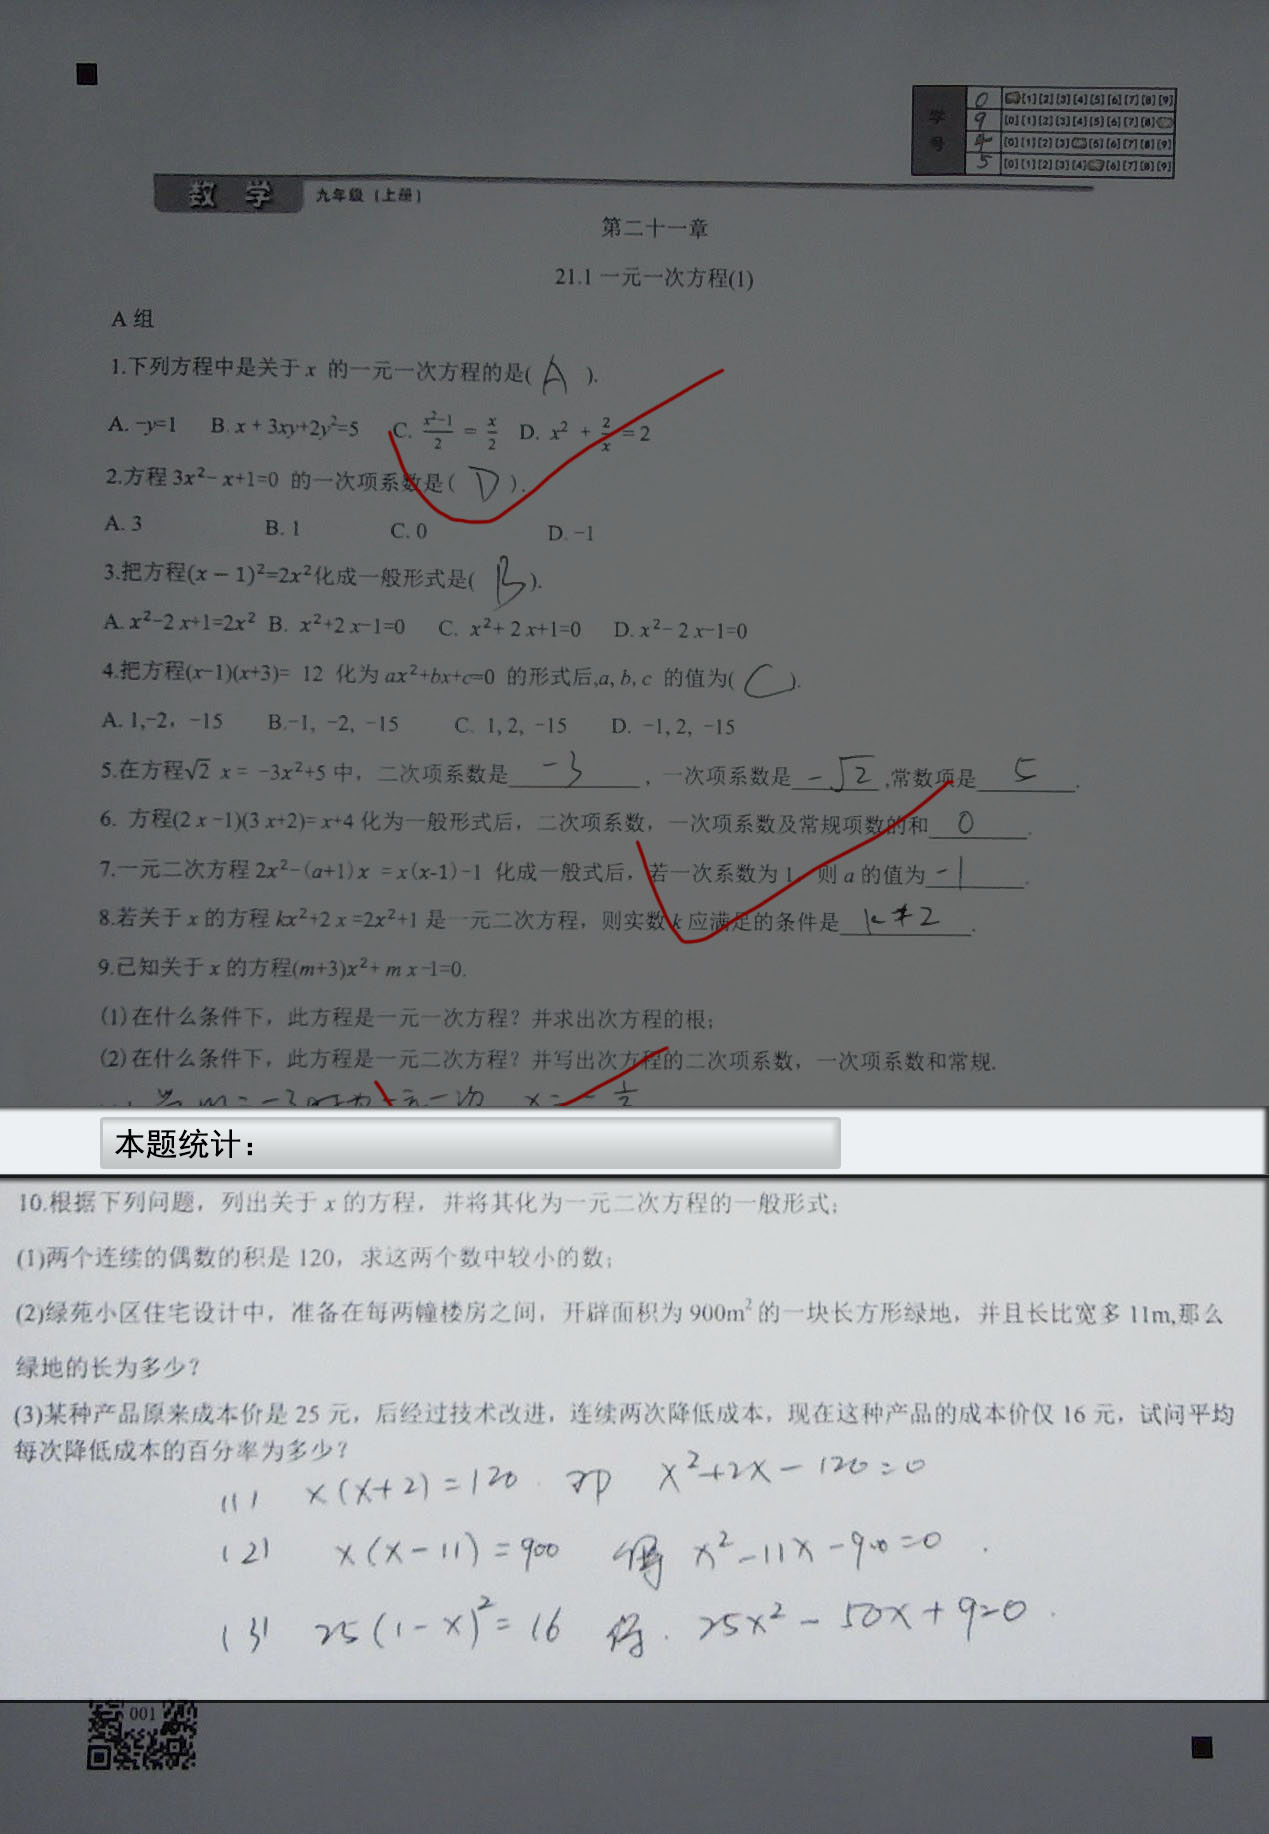 学号
0 [1] [2] [3] [4] [5] [6] [7] [8] [9]
9 [0] [1] [2] [3] [4] [5] [6] [7] [8]
4 [0] [1] [2] [3] [5] [6] [7] [8] [9]
5 [0] [1] [2] [3] [4] [6] [7] [8] [9]
数 学 九年级（上册）
第二十一章
21.1 一元一次方程(1)
A 组
1.下列方程中是关于 x 的一元一次方程的是( A ).
A. -y=1 B. x + 3xy+2y²=5 C. (x²-1)/2 = x/2 D. x² + 2/x = 2
2.方程 3x²- x+1=0 的一次项系数是( D ).
A. 3 B. 1 C. 0 D. -1
3.把方程(x − 1)²=2x²化成一般形式是( B ).
A. x²-2 x+1=2x² B. x²+2 x-1=0 C. x²+ 2 x+1=0 D. x²- 2 x-1=0
4.把方程(x-1)(x+3)= 12 化为 ax²+bx+c=0 的形式后,a, b, c 的值为( C ).
A. 1,-2，-15 B.-1, -2, -15 C. 1, 2, -15 D. -1, 2, -15
5.在方程√2 x = -3x²+5 中，二次项系数是 -3 ，一次项系数是 -√2 ,常数项是 5 .
6. 方程(2 x -1)(3 x+2)= x+4 化为一般形式后，二次项系数，一次项系数及常规项数的和 0 .
7.一元二次方程 2x²-(a+1) x = x (x-1) -1 化成一般式后，若一次系数为 1，则 a 的值为 -1 .
8.若关于 x 的方程 kx²+2 x =2x²+1 是一元二次方程，则实数 k 应满足的条件是 k≠2 .
9.已知关于 x 的方程(m+3)x²+ m x -1=0.
(1)在什么条件下，此方程是一元一次方程？并求出次方程的根；
(2)在什么条件下，此方程是一元二次方程？并写出次方程的二次项系数，一次项系数和常规.
本题统计：
10.根据下列问题，列出关于 x 的方程，并将其化为一元二次方程的一般形式；
(1)两个连续的偶数的积是 120，求这两个数中较小的数；
(2)绿苑小区住宅设计中，准备在每两幢楼房之间，开辟面积为 900m² 的一块长方形绿地，并且长比宽多 11m,那么
绿地的长为多少？
(3)某种产品原来成本价是 25 元，后经过技术改进，连续两次降低成本，现在这种产品的成本价仅 16 元，试问平均
每次降低成本的百分率为多少？
(1) x(x+2)=120. 即 x²+2x-120=0
(2) x(x-11)=900 得 x²-11x-900=0.
(3) 25(1-x)²=16 得. 25x²-50x+9=0.
001